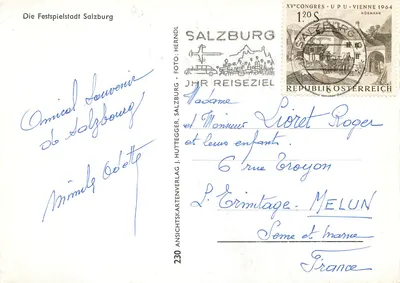 Die Festspielstadt Salzburg
Amical Souvenir
de Salzbourg
Odette
230 ANSICHTSKARTENVERLAG J. HUTTEGGER, SALZBURG · FOTO: HERNDL
SALZBURG
JHR REISEZIEL
SALZBURG
XVᵉ CONGRES · UPU · VIENNE 1964
KÖSSMANN
1.20 S
REPUBLIK ÖSTERREICH
Madame
et Monsieur Lioret Roger
et leurs enfants.
6 rue Troyon
L'Ermitage - MELUN
Seine et Marne
France